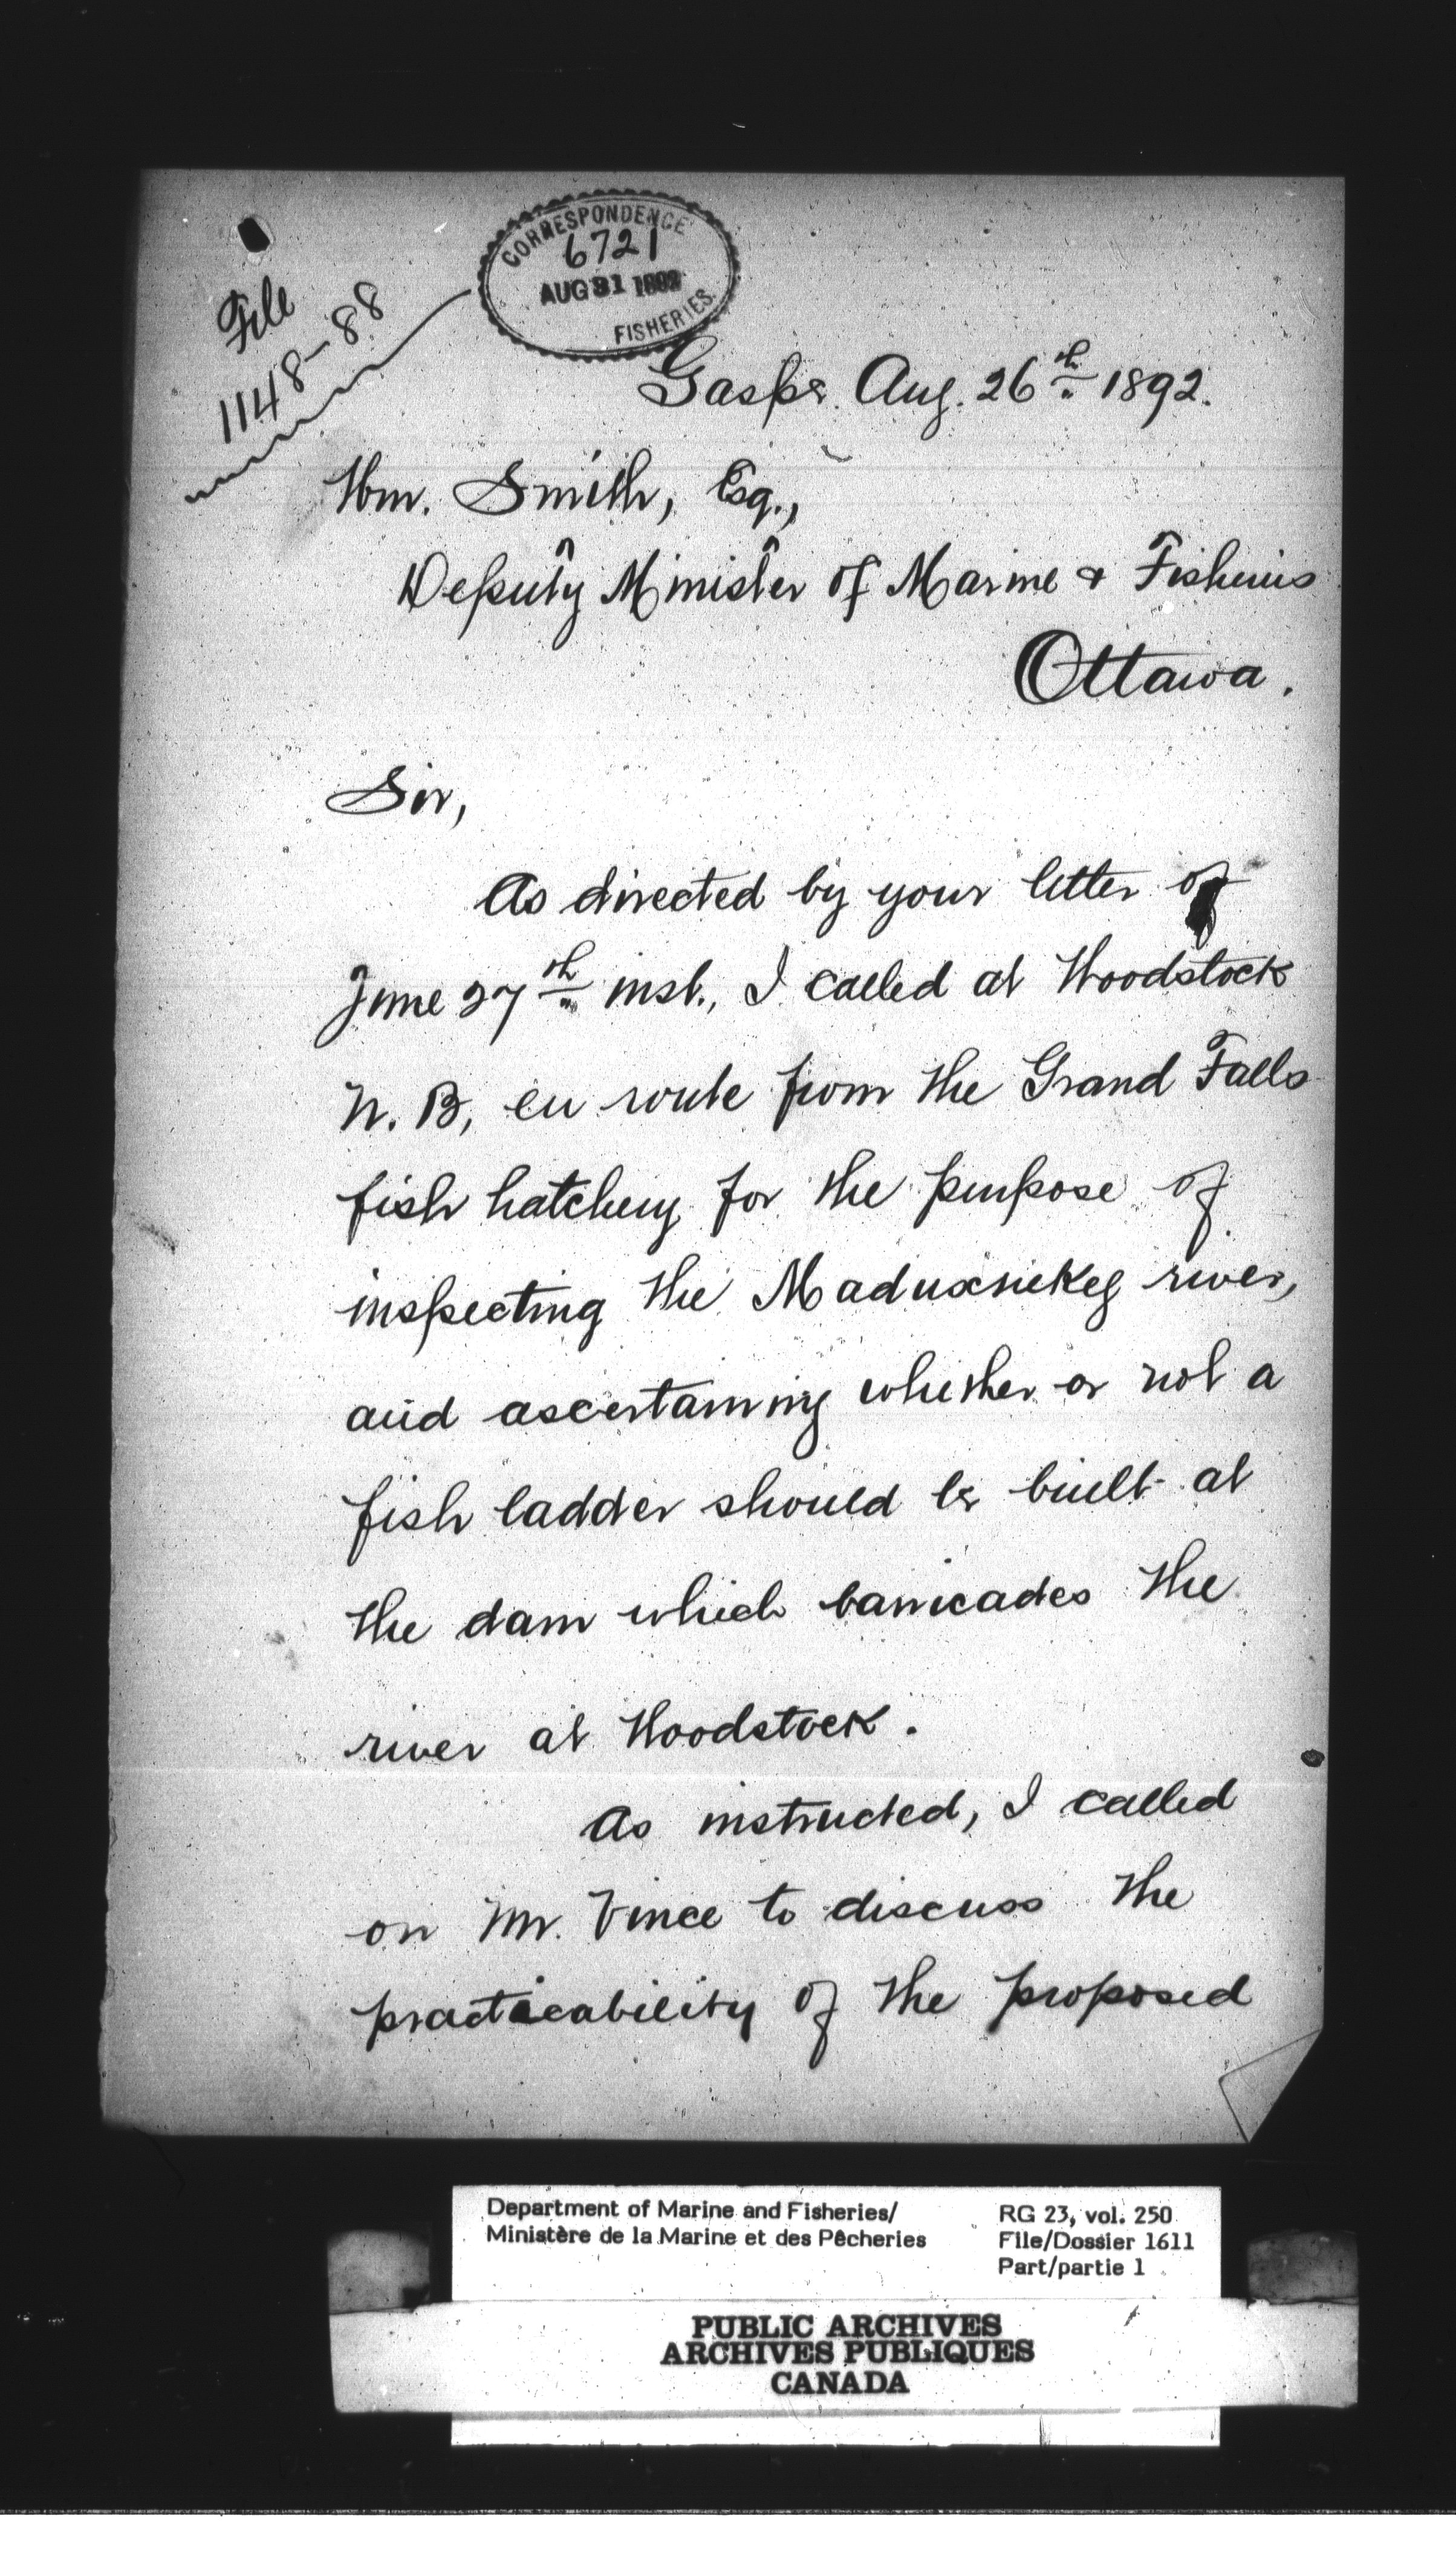 CORRESPONDENCE
6721
AUG 31 1892
FISHERIES.
File
1148-88
Gaspe. Aug. 26th 1892.
Wm. Smith, Esq.,
Deputy Minister of Marine & Fisheries
Ottawa.
Sir,
As directed by your letter of
June 27th inst., I called at Woodstock
N. B, en route from the Grand Falls
fish hatchery for the purpose of
inspecting the Maduxnekeg river,
and ascertaining whether or not a
fish ladder should be built at
the dam which barricades the
river at Woodstock.
As instructed, I called
on Mr. Vince to discuss the
practicability of the proposed
Department of Marine and Fisheries/
Ministère de la Marine et des Pêcheries
RG 23, vol. 250
File/Dossier 1611
Part/partie 1
PUBLIC ARCHIVES
ARCHIVES PUBLIQUES
CANADA